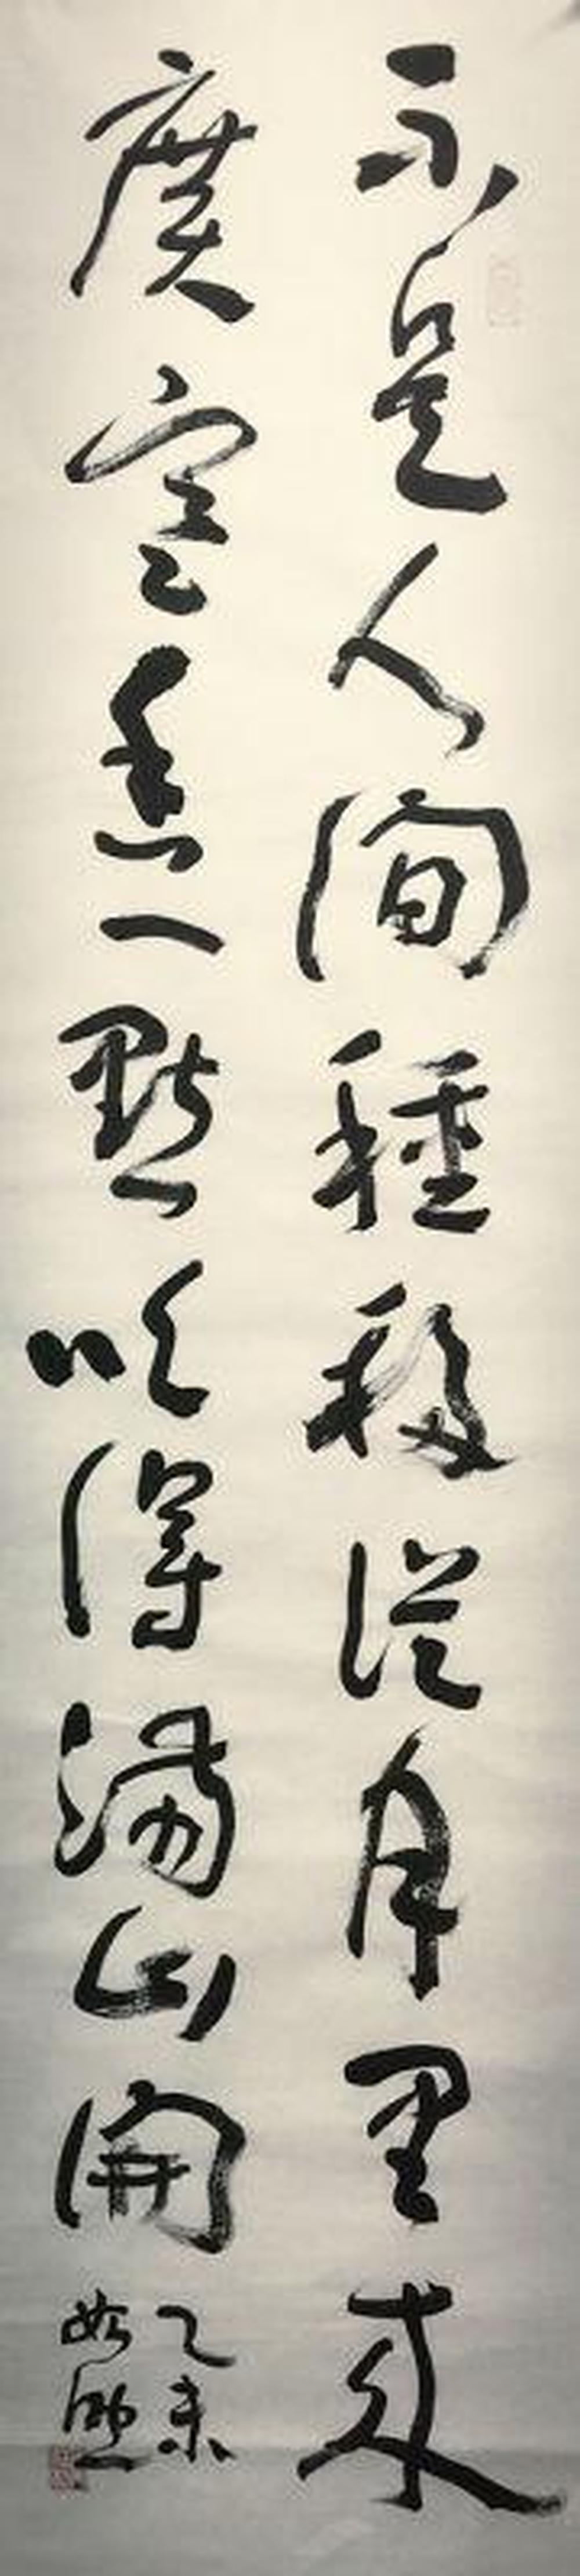 不是人間種移從月里來
廣寒香一點吹得滿山開
乙未